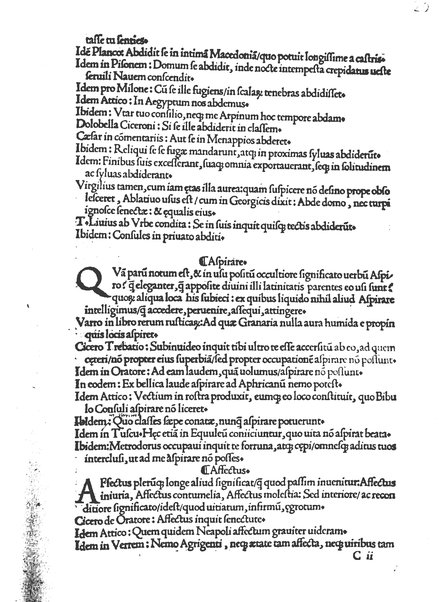 tasse tu senties.
Idē Planco: Abdidit se in intimā Macedoniā/quo potuit longissime a castris.
Idem in Pisonem: Domum se abdidit, inde nocte intempesta crepidatus ueste
seruili Nauem conscendit.
Idem pro Milone: Cū se ille fugiens/in scalaꝝ tenebras abdidisset.
Idem Attico: In Aegyptum nos abdemus.
Ibidem: Vtar tuo consilio, neqꝫ me Arpinum hoc tempore abdam.
Dolobella Ciceroni: Si se ille abdiderit in classem.
Cæsar in cōmentariis: Aut se in Menappios abderet.
Ibidem: Reliqui se se fugæ mandarunt, atqꝫ in proximas syluas abdiderūt.
Idem: Finibus suis excesserant, suaqꝫ omnia exportauerant, seqꝫ in solitudinem
ac syluas abdiderant.
Virgilius tamen, cum iam ętas illa aurea: quam suspicere nō desino prope obso
lesceret, Ablatiuo usus est/cum in Georgicis dixit: Abde domo, nec turpi
ignosce senectæ: & ęqualis eius.
T. Liuius ab Vrbe condita: Se in suis inquit quisqꝫ tectis abdiderūt.
Ibidem: Consules in priuato abditi.
¶Aspirare.
QVā parū notum est, & in usu positū occultiore significato uerbū Aspi
ro/ſ q̄ eleganter, q̄ apposite diuini illi latinitatis parentes eo usi sunt?
quoꝝ aliqua loca his subieci: ex quibus liquido nihil aliud Aspirare
intelligimus/q̄ accedere, peruenire, assequi, attingere.
Varro in libro rerum rusticaꝝ: Ad quæ Granaria nulla aura humida e propin
quis locis aspiret.
Cicero Trebatio: Subinuideo inquit tibi ultro te esse accersitū ab eo, ad quem
cęteri/nō propter eius superbiā/sed propter occupationē aspirare nō possunt.
Idem in Oratore: Ad eam laudem, quā uolumus/aspirare nō possunt.
In eodem: Ex bellica laude aspirare ad Aphricanū nemo potest.
Idem Attico: Vectium in rostra produxit, eumqꝫ eo loco constituit, quo Bibu
lo Consuli aspirare nō liceret.
Ibidem: Quo classes sæpe conatæ, nunq̄ aspirare potuerunt.
Idem in Tuscu. Hęc etiā in Equuleū coniiciuntur, quo uita nō aspirat beata.
Ibidem: Metrodorus occupaui inquit te fortuna, atqꝫ cępi/omnesqꝫ aditus tuos
interclusi, ut ad me aspirare nō posses.
¶Affectus.
AFfectus plerūqꝫ longe aliud significat/q̄ quod passim inuenitur: Affectus
iniuria, Affectus contumelia, Affectus molestia: Sed interiore/ac recon
ditiore significato/idest/quod uitiatum, infirmū, ęgrotum.
Cicero de Oratore: Affectus inquit senectute.
Idem Attico: Quem quidem Neapoli affectum grauiter uideram.
Idem in Verrem: Nemo Agrigenti, neqꝫ ætate tam affecta, neqꝫ uiribus tam
C ii